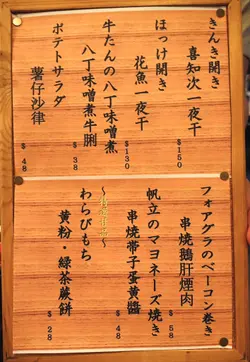 きんき開き
喜知次一夜干
$150
ほっけ開き
花魚一夜干
$130
牛たんの八丁味噌煮
八丁味噌煮牛脷
$38
ポテトサラダ
薯仔沙律
$48
フォアグラのベーコン巻き
串焼鵝肝煙肉
$58
帆立のマヨネーズ焼き
串焼帶子蛋黃醬
$48
わらびもち
黄粉・緑茶蕨餅
$28